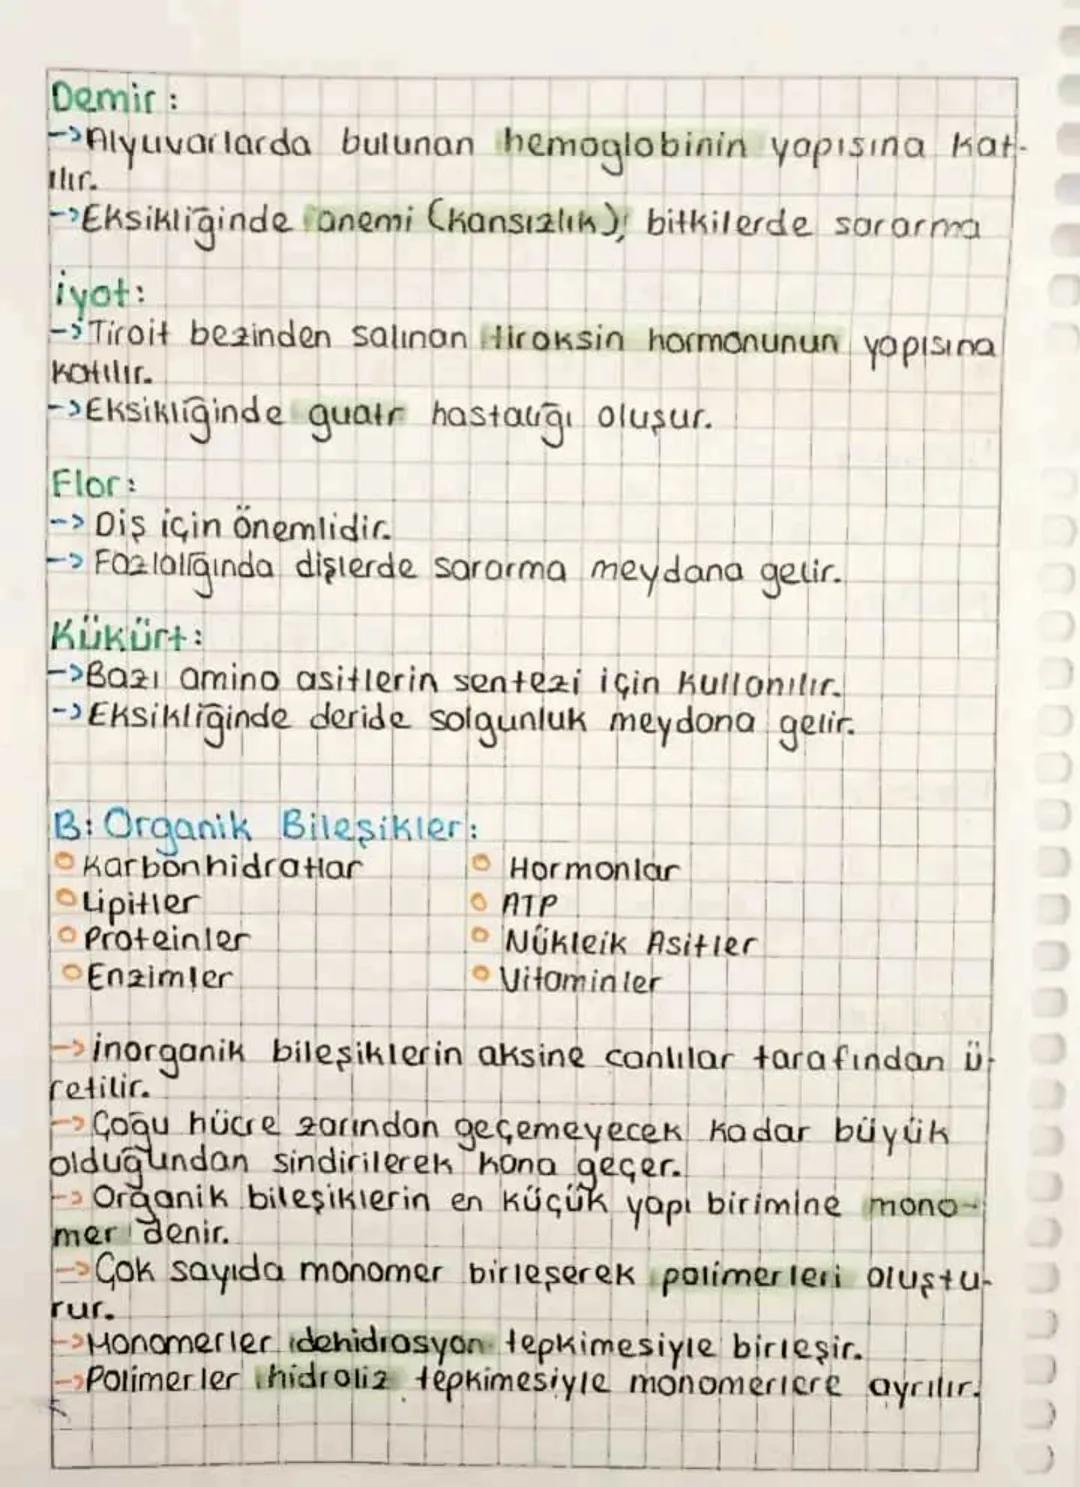 Demir:
->Alyuvarlarda bulunan hemoglobinin yapısına kat-
ılır.
->Eksikliğinde anemi (kansızlık); bitkilerde sararma
iyot:
->Tiroit bezinden salınan tiroksin hormonunun yapısına
katılır.
->Eksikliğinde guatr hastalığı oluşur.
Flor:
-> Diş için önemlidir.
-> Fazlalığında dişlerde sararma meydana gelir.
Kükürt:
->Bazı amino asitlerin sentezi için kullanılır.
->Eksikliğinde deride solgunluk meydana gelir.
B: Organik Bileşikler:
Karbonhidratlar
Lipitler
Proteinler
Enzimler
Hormonlar
ATP
Nükleik Asitler
Vitaminler
->inorganik bileşiklerin aksine canlılar tarafından ü-
retilir.
->Çoğu hücre zarından geçemeyecek kadar büyük
olduğundan sindirilerek kana geçer.
->Organik bileşiklerin en küçük yapı birimine mono-
mer denir.
->Çok sayıda monomer birleşerek polimerleri oluştu-
rur.
->Monomerler dehidrasyon tepkimesiyle birleşir.
->Polimerler hidroliz tepkimesiyle monomerlere ayrılır.